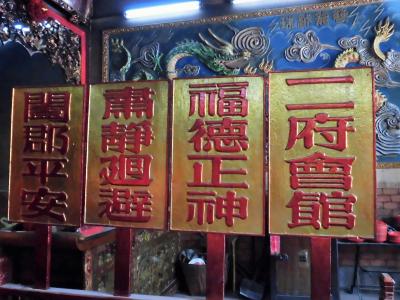 二府會館
福德正神
肅靜迴避
闔郡平安